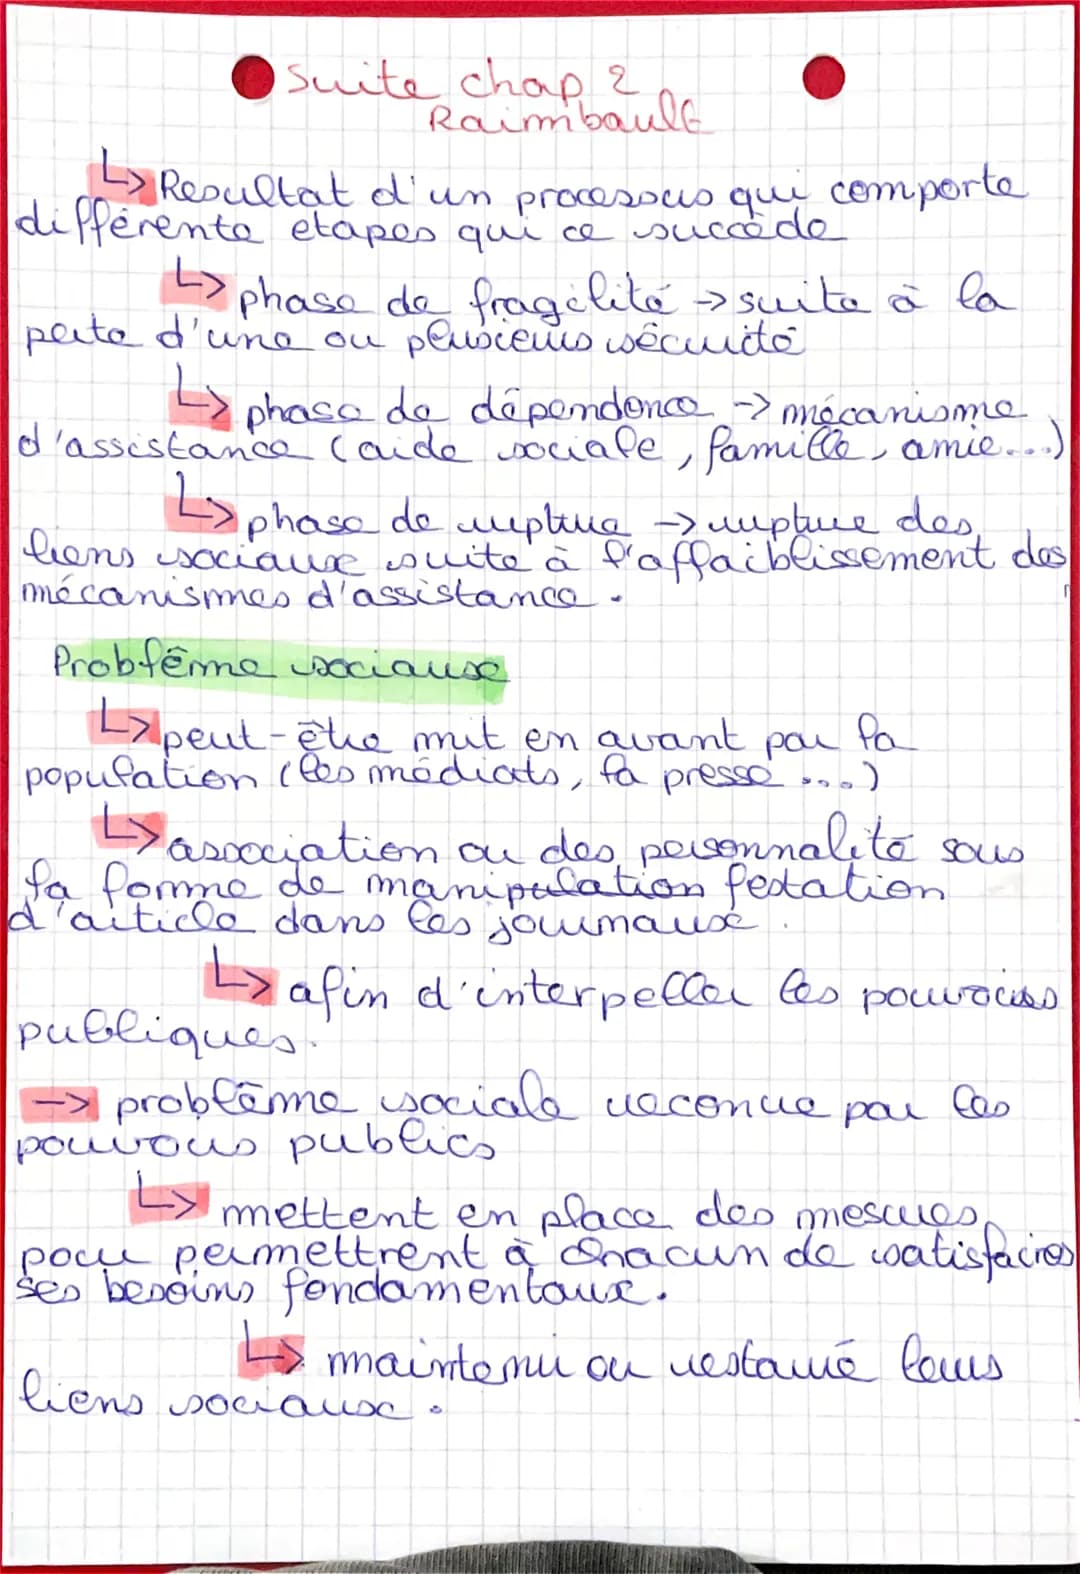 Suite chap 2
Raimbault
↳ Resultat d'un processus qui comporte
différente etapes qui ce succède
↳ phase de fragilité → suite à la
perte d'une ou plusieurs sécurité
↳ phase de dépendance → mécanisme
d'assistance (aide sociale, famille, amie...)
↳ phase de rupture → rupture des
liens sociaux suite à l'affaiblissement des
mécanismes d'assistance.
Problème sociaux
↳ peut-être mit en avant par la
population (les médiats, la presse ...)
↳ association ou des personnalité sous
la forme de manipulation festation
d'article dans les journaux.
↳ afin d'interpeller les pouvoirs
publiques.
→ problème sociale reconue par les
pouvoirs publics
↳ mettent en place des mesures
pour permettrent à chacun de satisfaires
ses besoins fondamentaux.
↳ maintenu ou restauré leurs
liens sociaux.